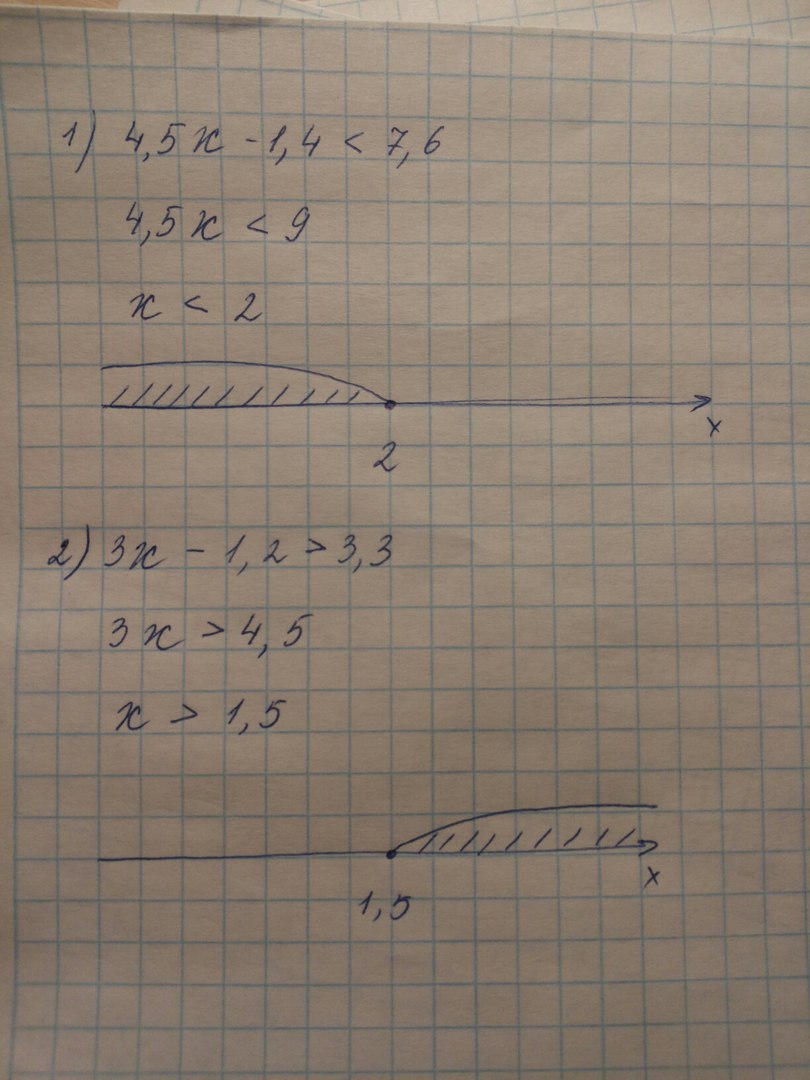 1) 4,5x - 1,4 < 7,6
4,5x < 9
x < 2
x
2
2) 3x - 1,2 > 3,3
3x > 4,5
x > 1,5
x
1,5